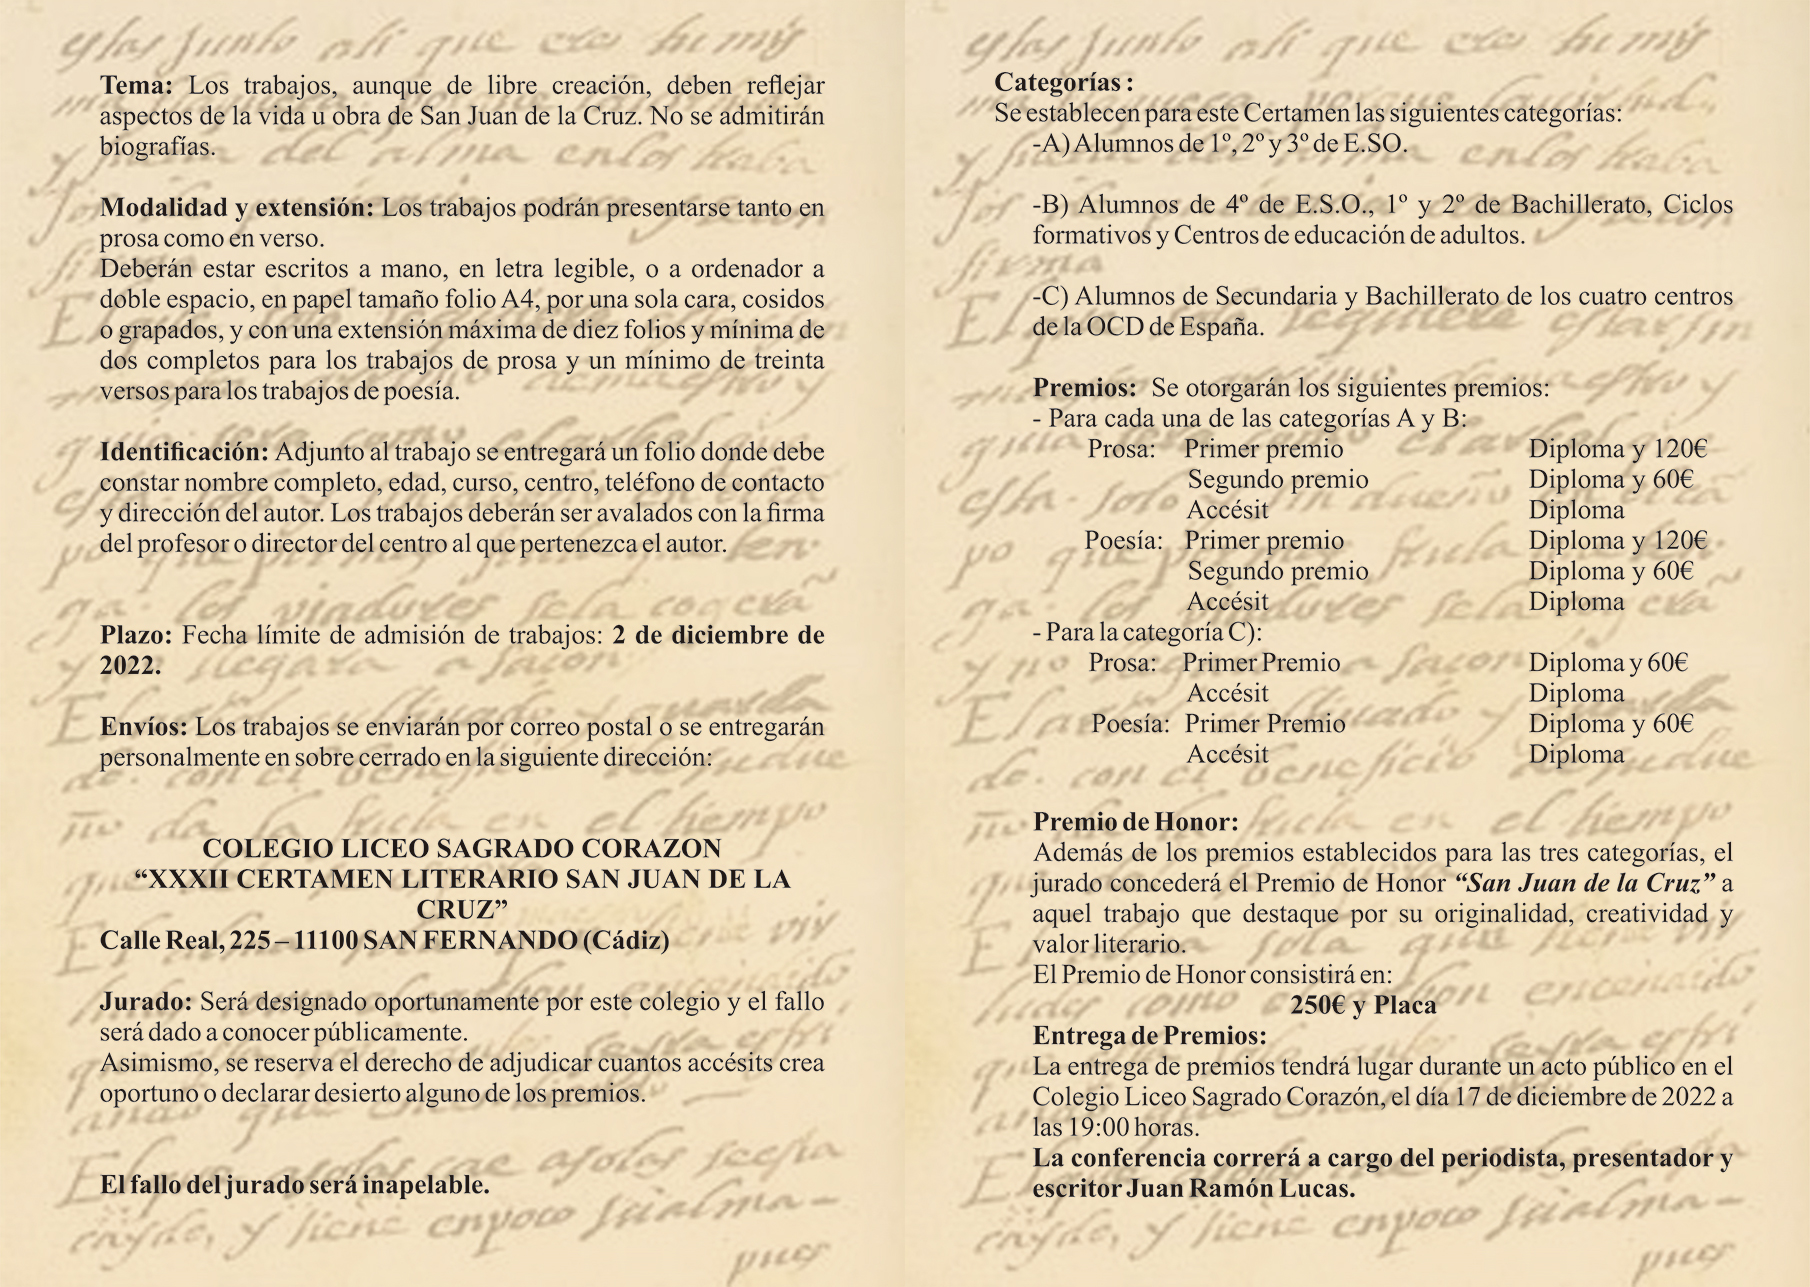 Tema: Los trabajos, aunque de libre creación, deben reflejar
aspectos de la vida u obra de San Juan de la Cruz. No se admitirán
biografías.
Modalidad y extensión: Los trabajos podrán presentarse tanto en
prosa como en verso.
Deberán estar escritos a mano, en letra legible, o a ordenador a
doble espacio, en papel tamaño folio A4, por una sola cara, cosidos
o grapados, y con una extensión máxima de diez folios y mínima de
dos completos para los trabajos de prosa y un mínimo de treinta
versos para los trabajos de poesía.
Identificación: Adjunto al trabajo se entregará un folio donde debe
constar nombre completo, edad, curso, centro, teléfono de contacto
y dirección del autor. Los trabajos deberán ser avalados con la firma
del profesor o director del centro al que pertenezca el autor.
Plazo: Fecha límite de admisión de trabajos: 2 de diciembre de
2022.
Envíos: Los trabajos se enviarán por correo postal o se entregarán
personalmente en sobre cerrado en la siguiente dirección:
COLEGIO LICEO SAGRADO CORAZON
“XXXII CERTAMEN LITERARIO SAN JUAN DE LA
CRUZ”
Calle Real, 225 – 11100 SAN FERNANDO (Cádiz)
Jurado: Será designado oportunamente por este colegio y el fallo
será dado a conocer públicamente.
Asimismo, se reserva el derecho de adjudicar cuantos accésits crea
oportuno o declarar desierto alguno de los premios.
El fallo del jurado será inapelable.
Categorías :
Se establecen para este Certamen las siguientes categorías:
-A) Alumnos de 1º, 2º y 3º de E.SO.
-B) Alumnos de 4º de E.S.O., 1º y 2º de Bachillerato, Ciclos
formativos y Centros de educación de adultos.
-C) Alumnos de Secundaria y Bachillerato de los cuatro centros
de la OCD de España.
Premios: Se otorgarán los siguientes premios:
- Para cada una de las categorías A y B:
Prosa: Primer premio Diploma y 120€
Segundo premio Diploma y 60€
Accésit Diploma
Poesía: Primer premio Diploma y 120€
Segundo premio Diploma y 60€
Accésit Diploma
- Para la categoría C):
Prosa: Primer Premio Diploma y 60€
Accésit Diploma
Poesía: Primer Premio Diploma y 60€
Accésit Diploma
Premio de Honor:
Además de los premios establecidos para las tres categorías, el
jurado concederá el Premio de Honor “San Juan de la Cruz” a
aquel trabajo que destaque por su originalidad, creatividad y
valor literario.
El Premio de Honor consistirá en:
250€ y Placa
Entrega de Premios:
La entrega de premios tendrá lugar durante un acto público en el
Colegio Liceo Sagrado Corazón, el día 17 de diciembre de 2022 a
las 19:00 horas.
La conferencia correrá a cargo del periodista, presentador y
escritor Juan Ramón Lucas.